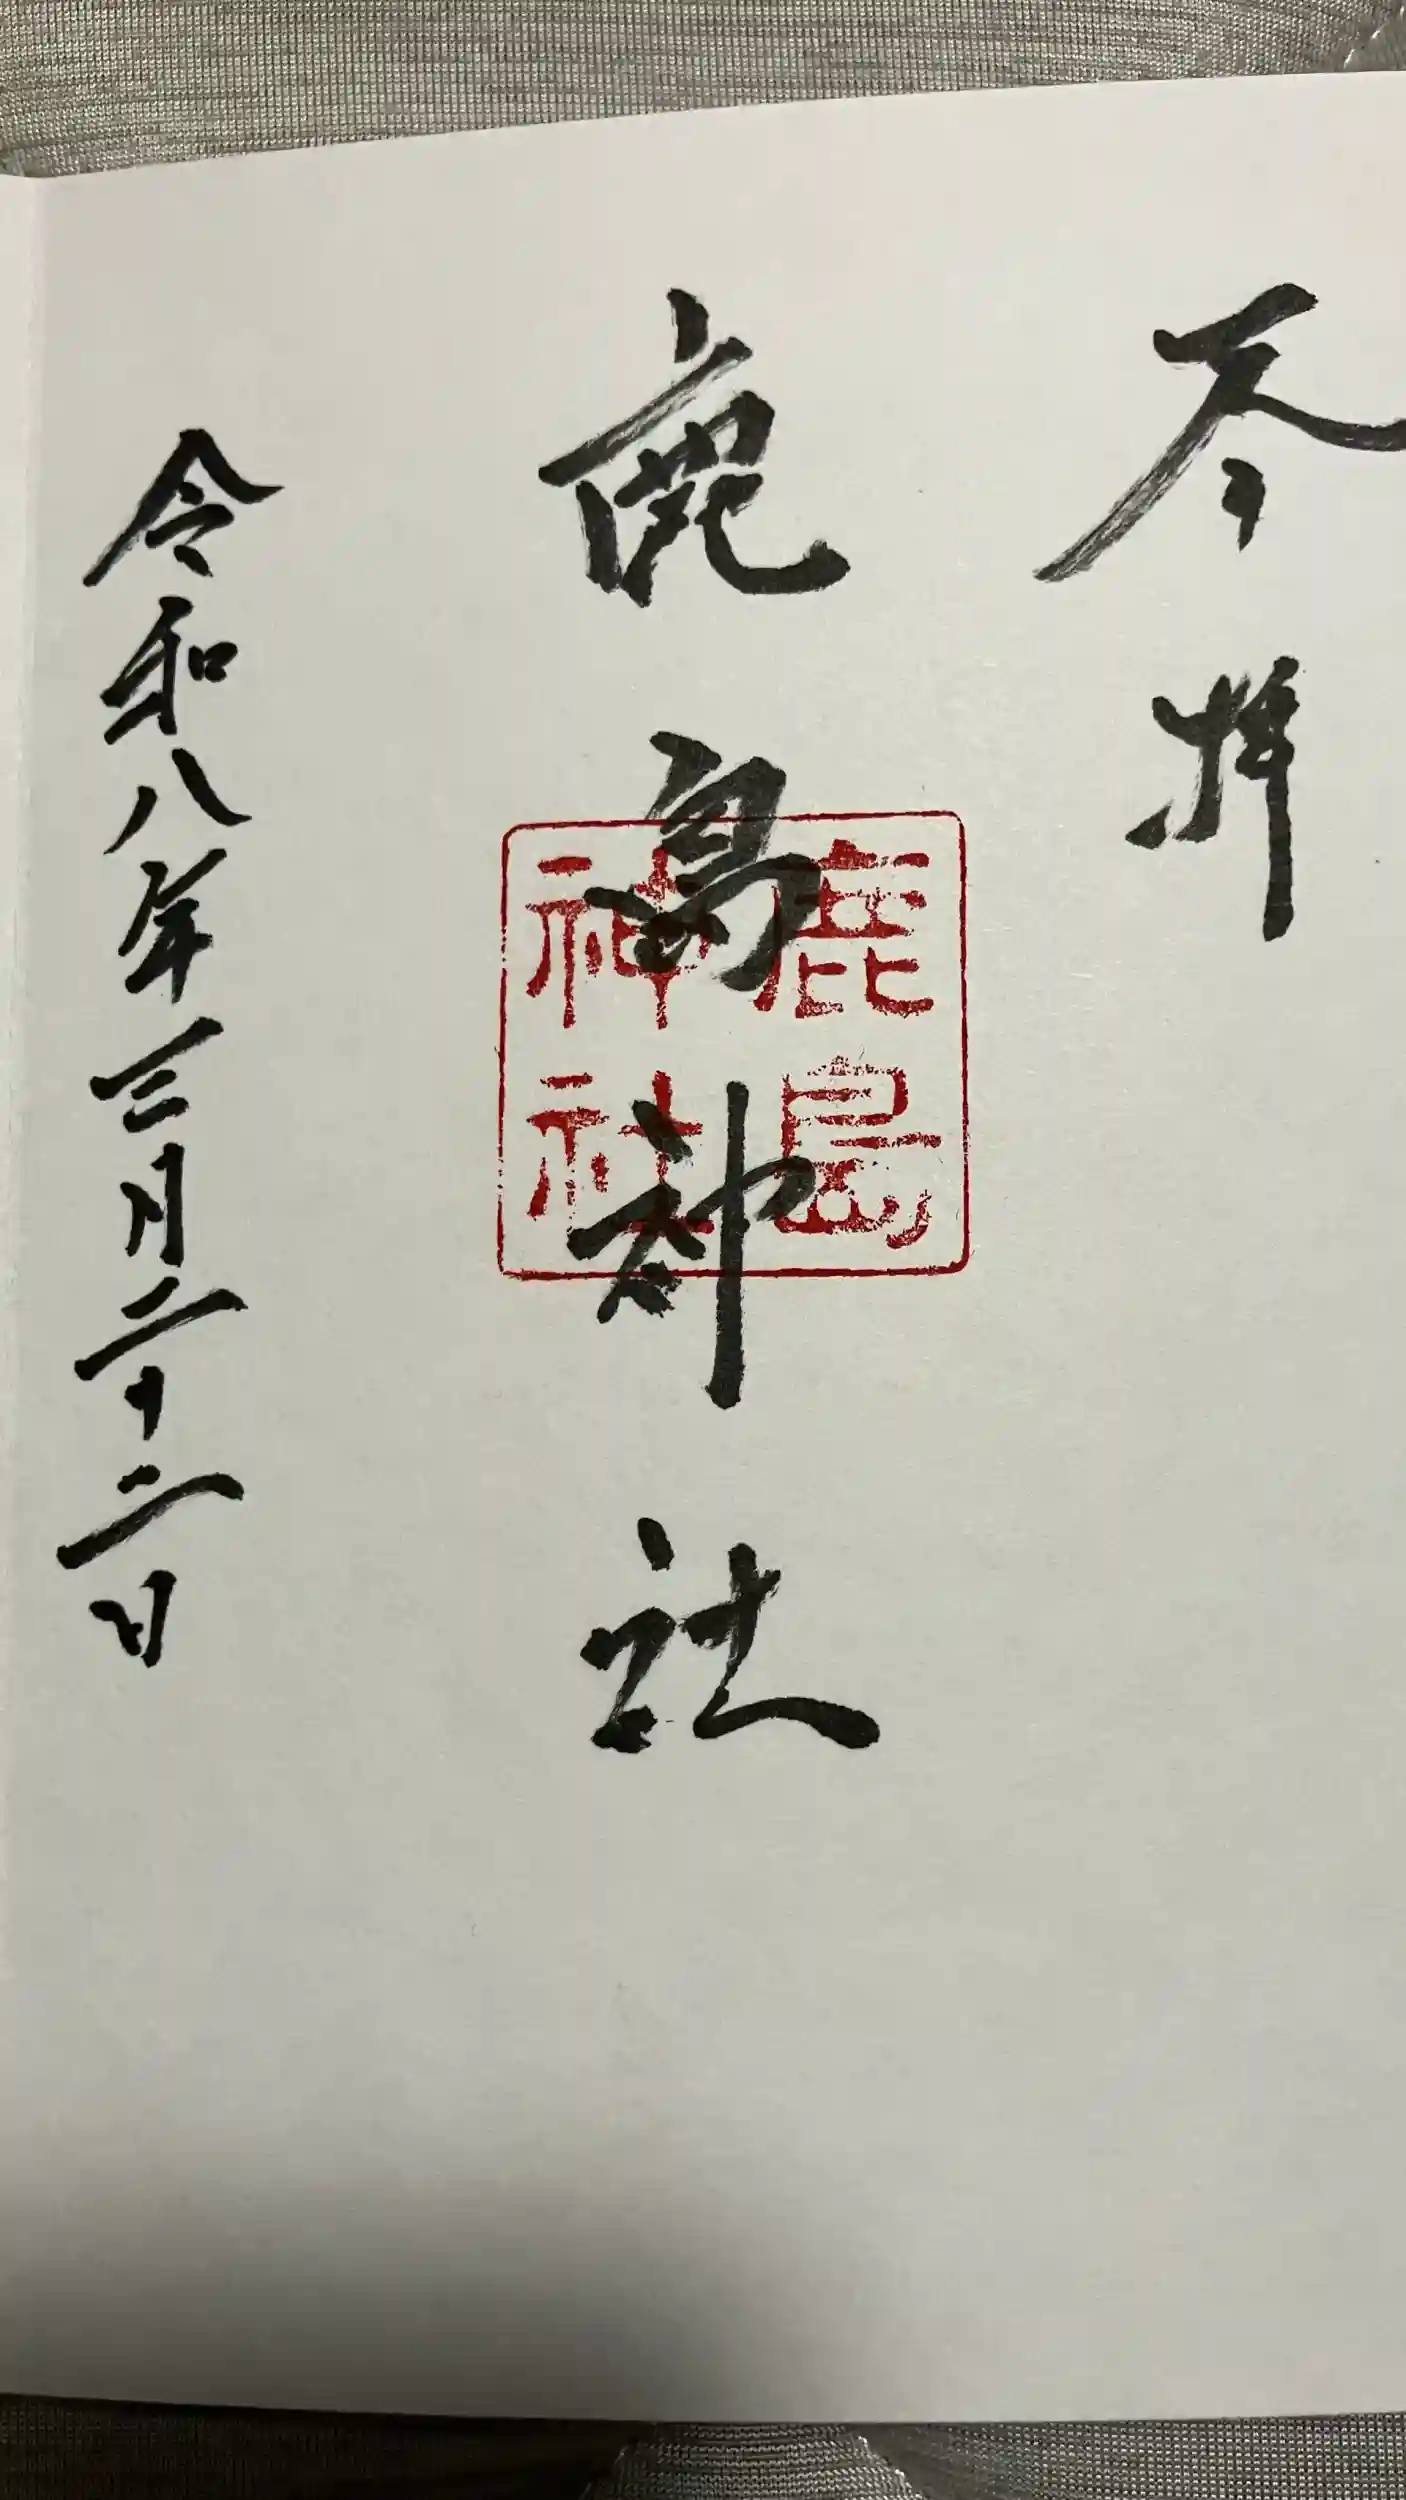 奉拝
鹿島神社
鹿島
神社
令和八年三月二十二日